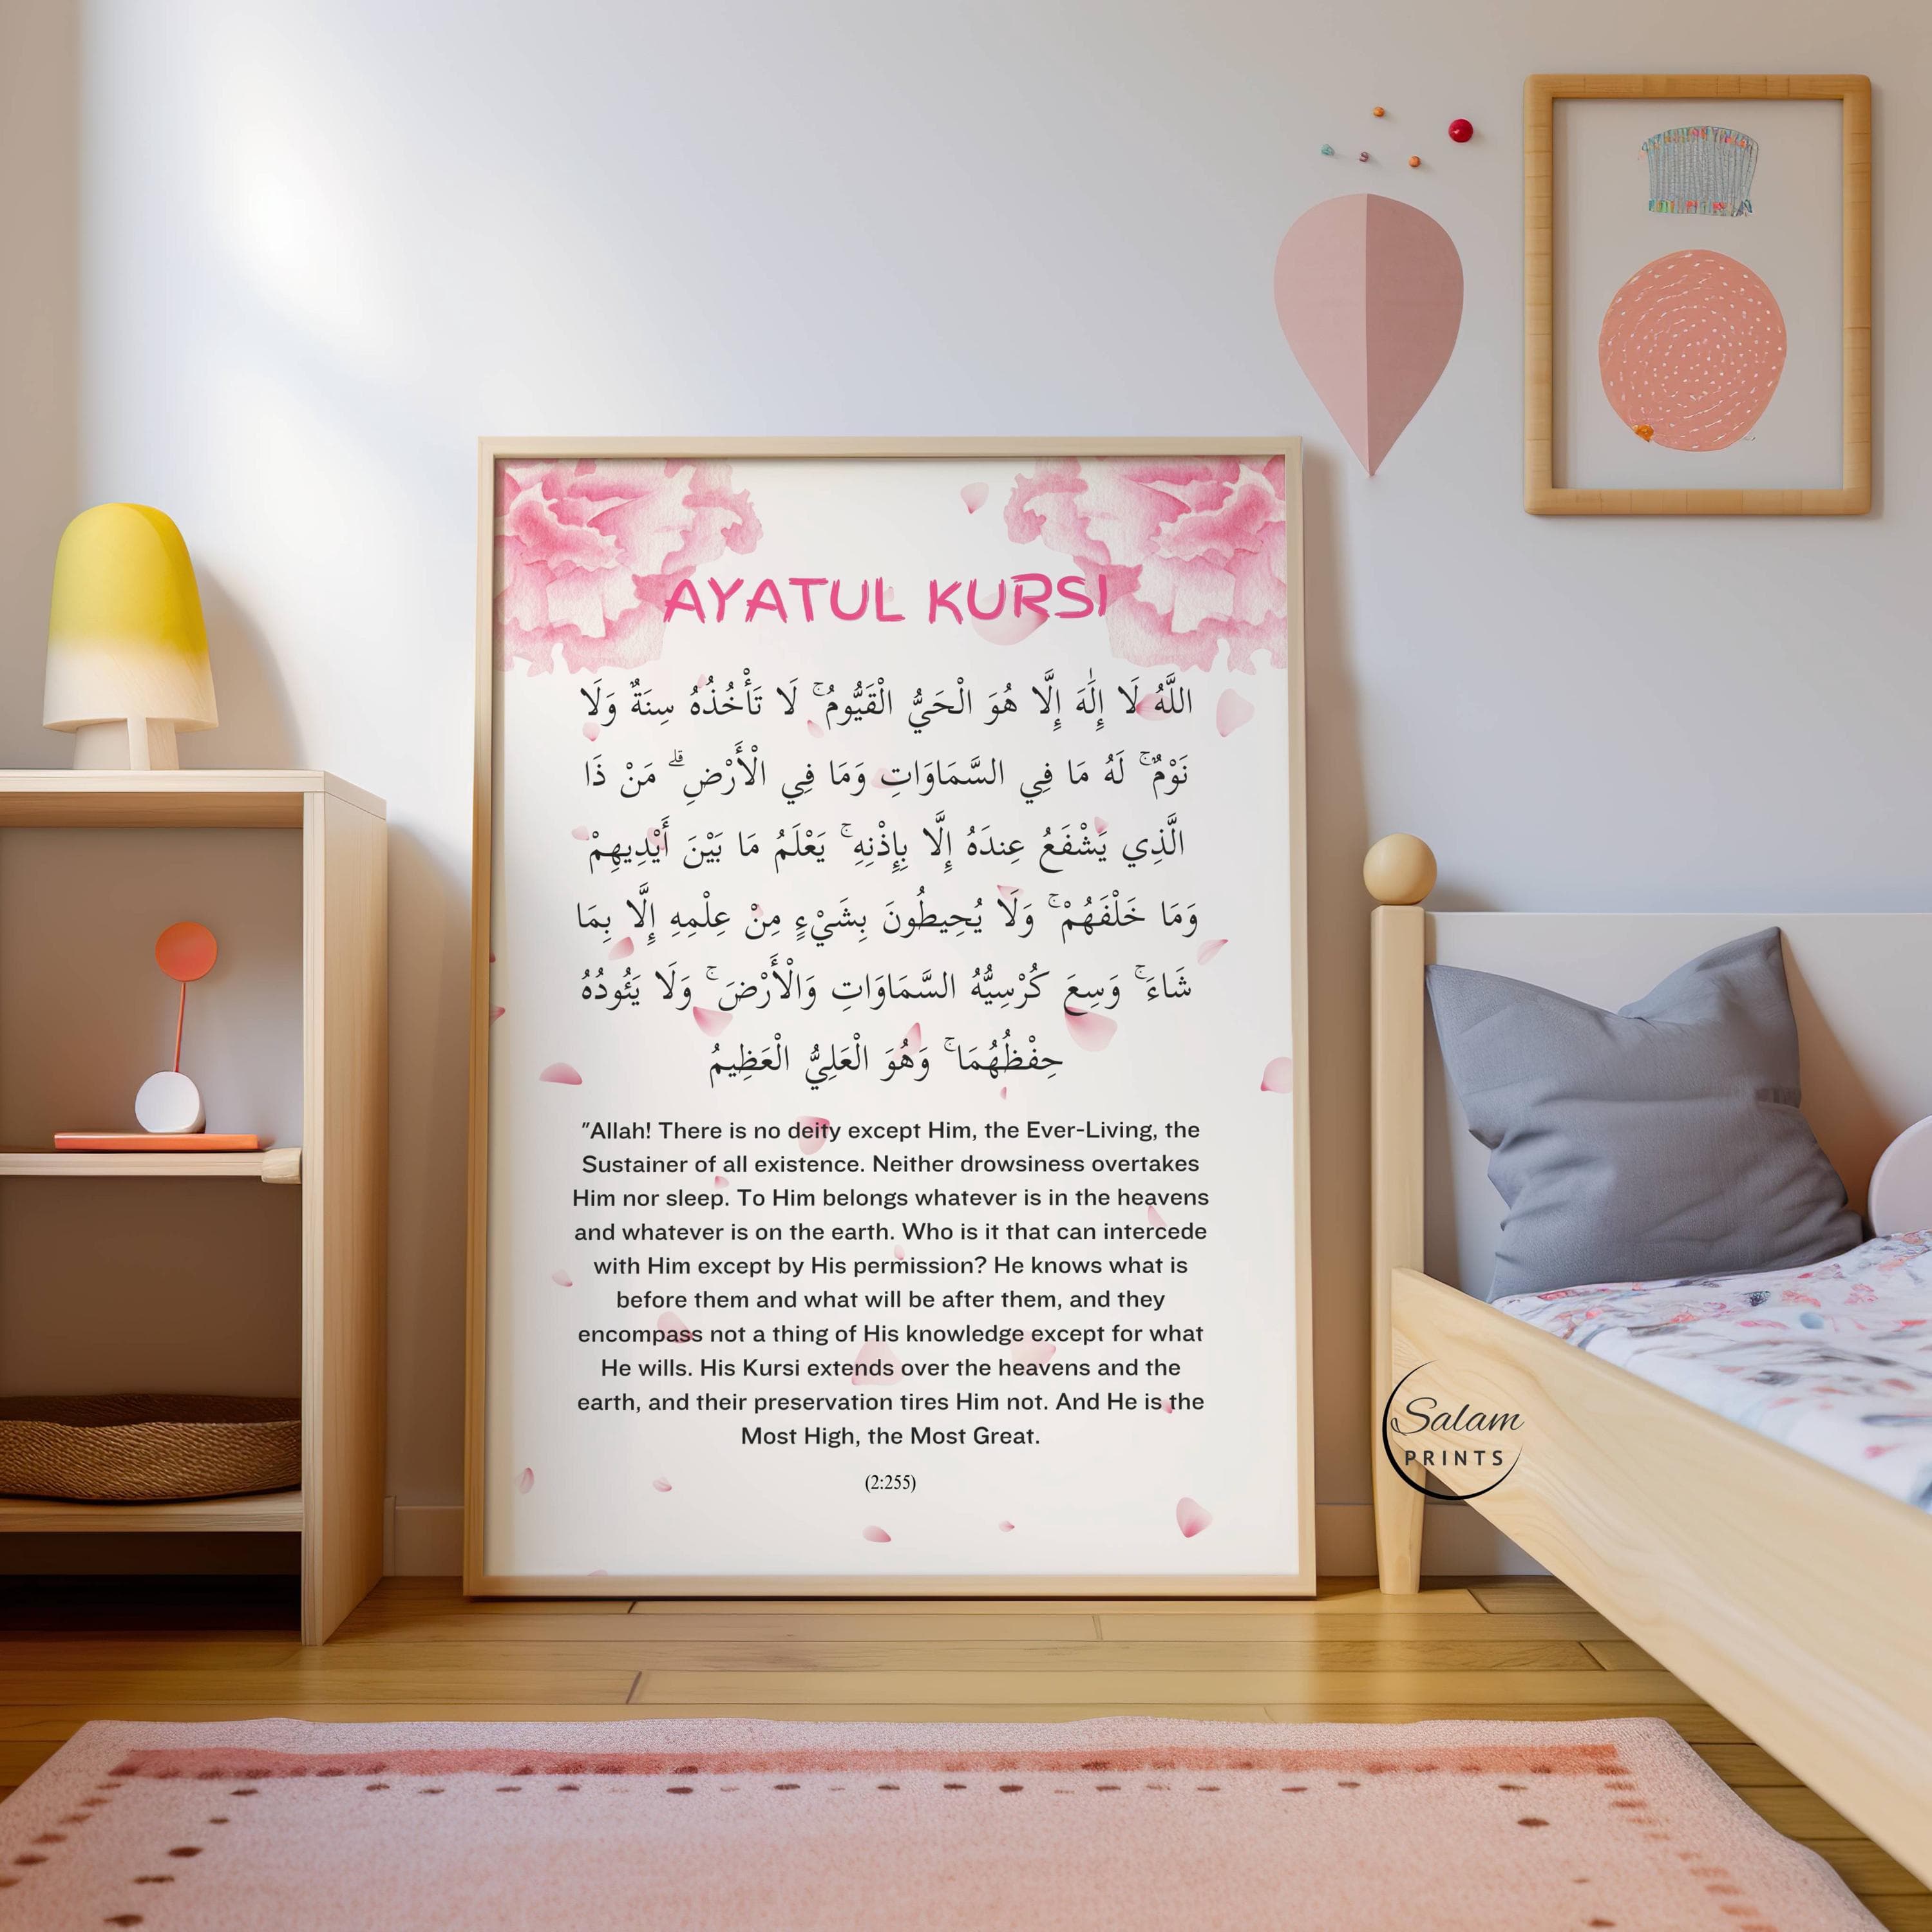 AYATUL KURSI
اللَّهُ لَا إِلَٰهَ إِلَّا هُوَ الْحَيُّ الْقَيُّومُ ۚ لَا تَأْخُذُهُ سِنَةٌ وَلَا
نَوْمٌ ۚ لَهُ مَا فِي السَّمَاوَاتِ وَمَا فِي الْأَرْضِ ۗ مَنْ ذَا
الَّذِي يَشْفَعُ عِندَهُ إِلَّا بِإِذْنِهِ ۚ يَعْلَمُ مَا بَيْنَ أَيْدِيهِمْ
وَمَا خَلْفَهُمْ ۚ وَلَا يُحِيطُونَ بِشَيْءٍ مِنْ عِلْمِهِ إِلَّا بِمَا
شَاءَ ۚ وَسِعَ كُرْسِيُّهُ السَّمَاوَاتِ وَالْأَرْضَ ۚ وَلَا يَئُودُهُ
حِفْظُهُمَا ۚ وَهُوَ الْعَلِيُّ الْعَظِيمُ
"Allah! There is no deity except Him, the Ever-Living, the
Sustainer of all existence. Neither drowsiness overtakes
Him nor sleep. To Him belongs whatever is in the heavens
and whatever is on the earth. Who is it that can intercede
with Him except by His permission? He knows what is
before them and what will be after them, and they
encompass not a thing of His knowledge except for what
He wills. His Kursi extends over the heavens and the
earth, and their preservation tires Him not. And He is the
Most High, the Most Great.
(2:255)
Salam
PRINTS